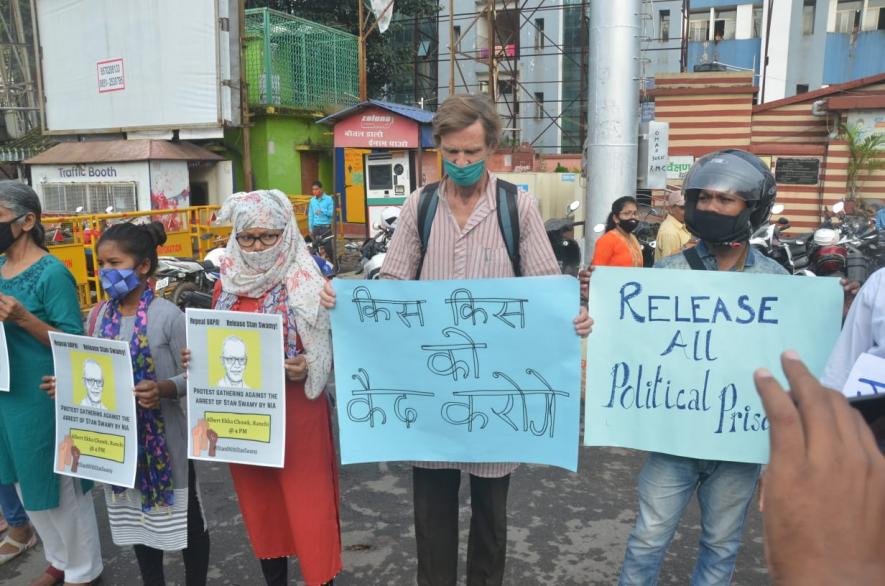 Traffic Booth
zalona
डालो
बोतल
ईनाम पाओ
Repeal UAPA! Release Stan Swamy!
PROTEST GATHERING AGAINST THE
ARREST OF STAN SWAMY BY NIA
Albert Ekka Chowk, Ranchi
@ 4 PM
#StandWithStanSwamy
Repeal UAPA! Release Stan Swamy!
PROTEST GATHERING AGAINST THE
ARREST OF STAN SWAMY BY NIA
Albert Ekka Chowk, Ranchi
@ 4 PM
#StandWithStanSwamy
किस किस
को
कैद करोगे
RELEASE
All
Political Priso